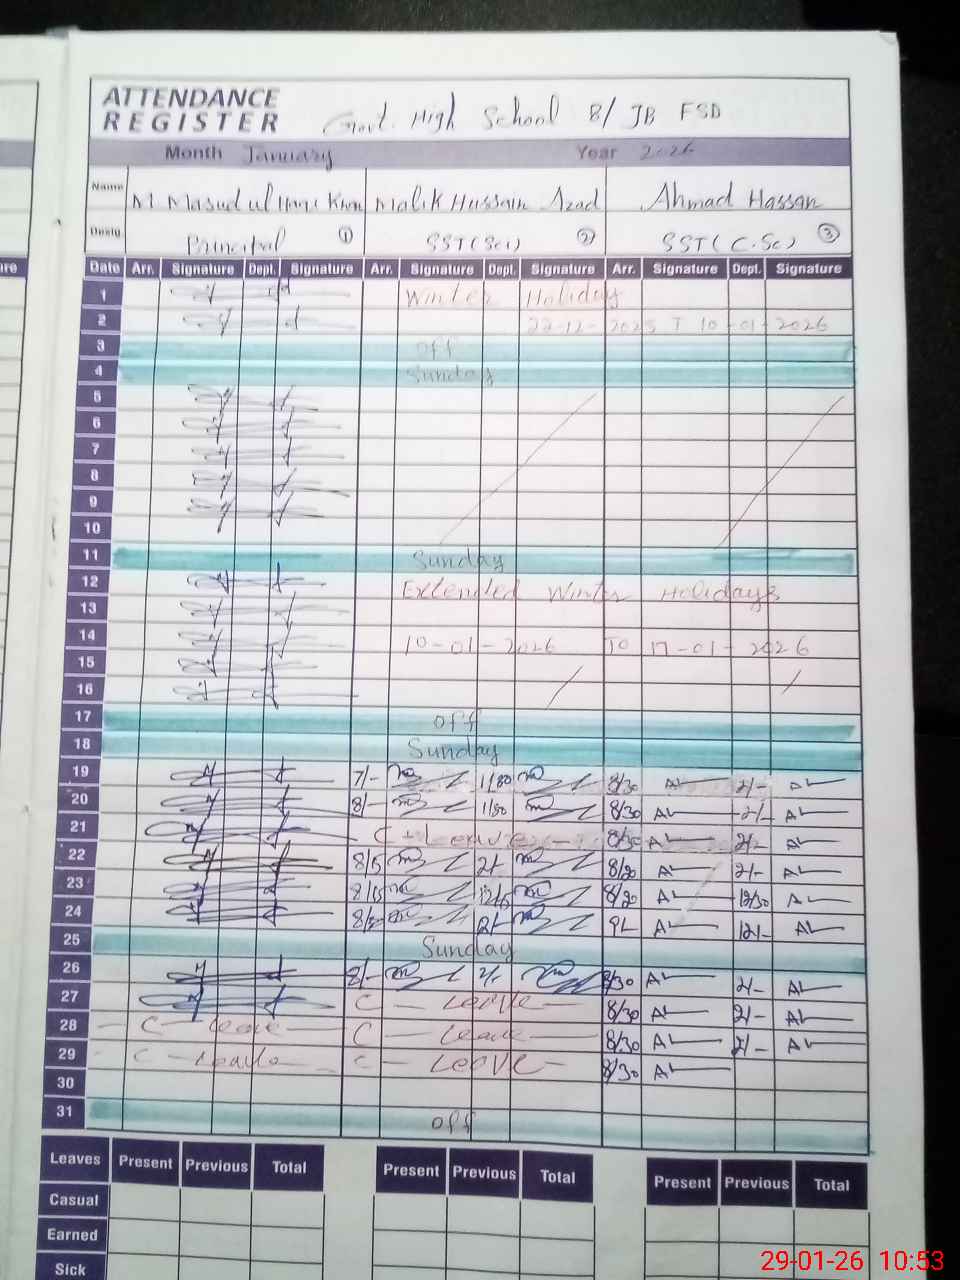 ATTENDANCE
REGISTER
Govt. High School 8/ JB FSD
Month January Year 2026
Name M Masud ul Hani Khan Malik Hussain Azad Ahmad Hassan
Desig. Principal 1 SST(Sci) 2 SST(C.Sc) 3
Date Arr. Signature Dept. Signature Arr. Signature Dept. Signature Arr. Signature Dept. Signature
1 Winter Holiday
2 22-12-2025 T 10-01-2026
3 off
4 Sunday
5
6
7
8
9
10
11 Sunday
12 Extended Winter Holidays
13
14 10-01-2026 To 17-01-2026
15
16
17 off
18 Sunday
19 7/- 8/30 2/-
20 8/- 8/30 2/-
21 C - Leave - 8/30 2/-
22 8/15 2/- 8/20 2/-
23 8/15 8/20 12/30
24 2/- 12/-
25 Sunday
26 8/- 2/- 8/30 2/-
27 C - Leave - 8/30 2/-
28 - C - leave - C - Leave - 8/30 2/-
29 - C - Leave - C - Leave - 8/30
30
31 off
Leaves Present Previous Total Present Previous Total Present Previous Total
Casual
Earned
Sick
29-01-26 10:53